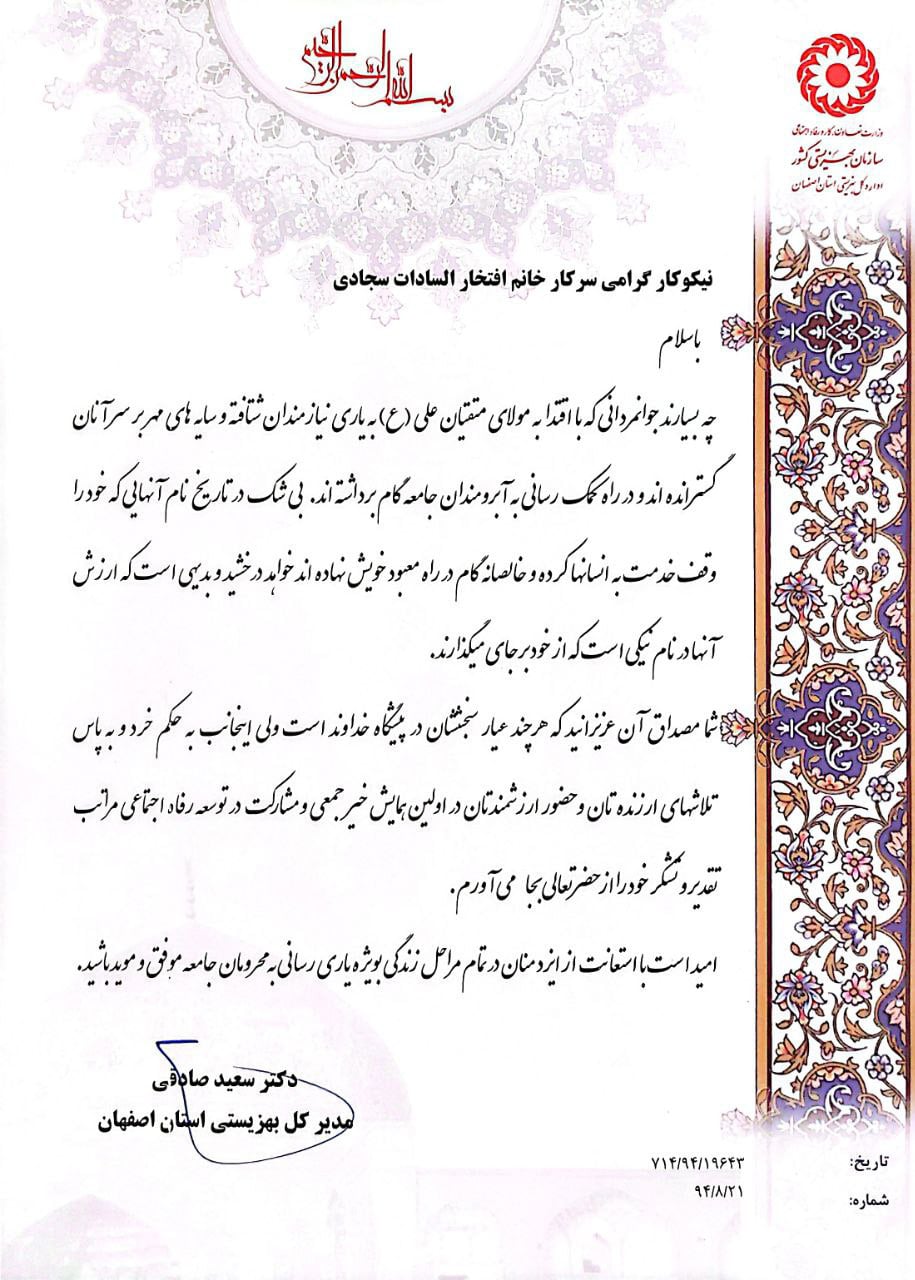 بسم الله الرحمن الرحیم
وزارت تعاون، کار و رفاه اجتماعی
سازمان بهزیستی کشور
اداره کل بهزیستی استان اصفهان
نیکوکار گرامی سرکار خانم افتخار السادات سجادی
باسلام
چه بسیارند جوانمردانی که با اقتدا به مولای متقیان علی (ع) به یاری نیازمندان شتافته و سایه های مهر بر سر آنان
گسترانده اند و در راه کمک رسانی به آبرومندان جامعه گام برداشته اند. بی شک در تاریخ نام آنهایی که خود را
وقف خدمت به انسانها کرده و خالصانه گام در راه معبود خویش نهاده اند خواهد درخشید و بدیهی است که ارزش
آنها در نام نیکی است که از خود بر جای میگذارند.
شما مصداق آن عزیزانید که هر چند عیار سنجشتان در پیشگاه خداوند است ولی اینجانب به حکم خرد و به پاس
تلاشهای ارزنده تان و حضور ارزشمندتان در اولین همایش خیر جمعی و مشارکت در توسعه رفاه اجتماعی مراتب
تقدیر و تشکر خود را از حضرتعالی بجا می آورم.
امید است با استعانت از ایزد منان در تمام مراحل زندگی بویژه یاری رسانی به محرومان جامعه موفق و موید باشید.
دکتر سعید صادقی
مدیر کل بهزیستی استان اصفهان
تاریخ: ۷۱۴/۹۴/۱۹۶۴۳
شماره: ۹۴/۸/۲۱